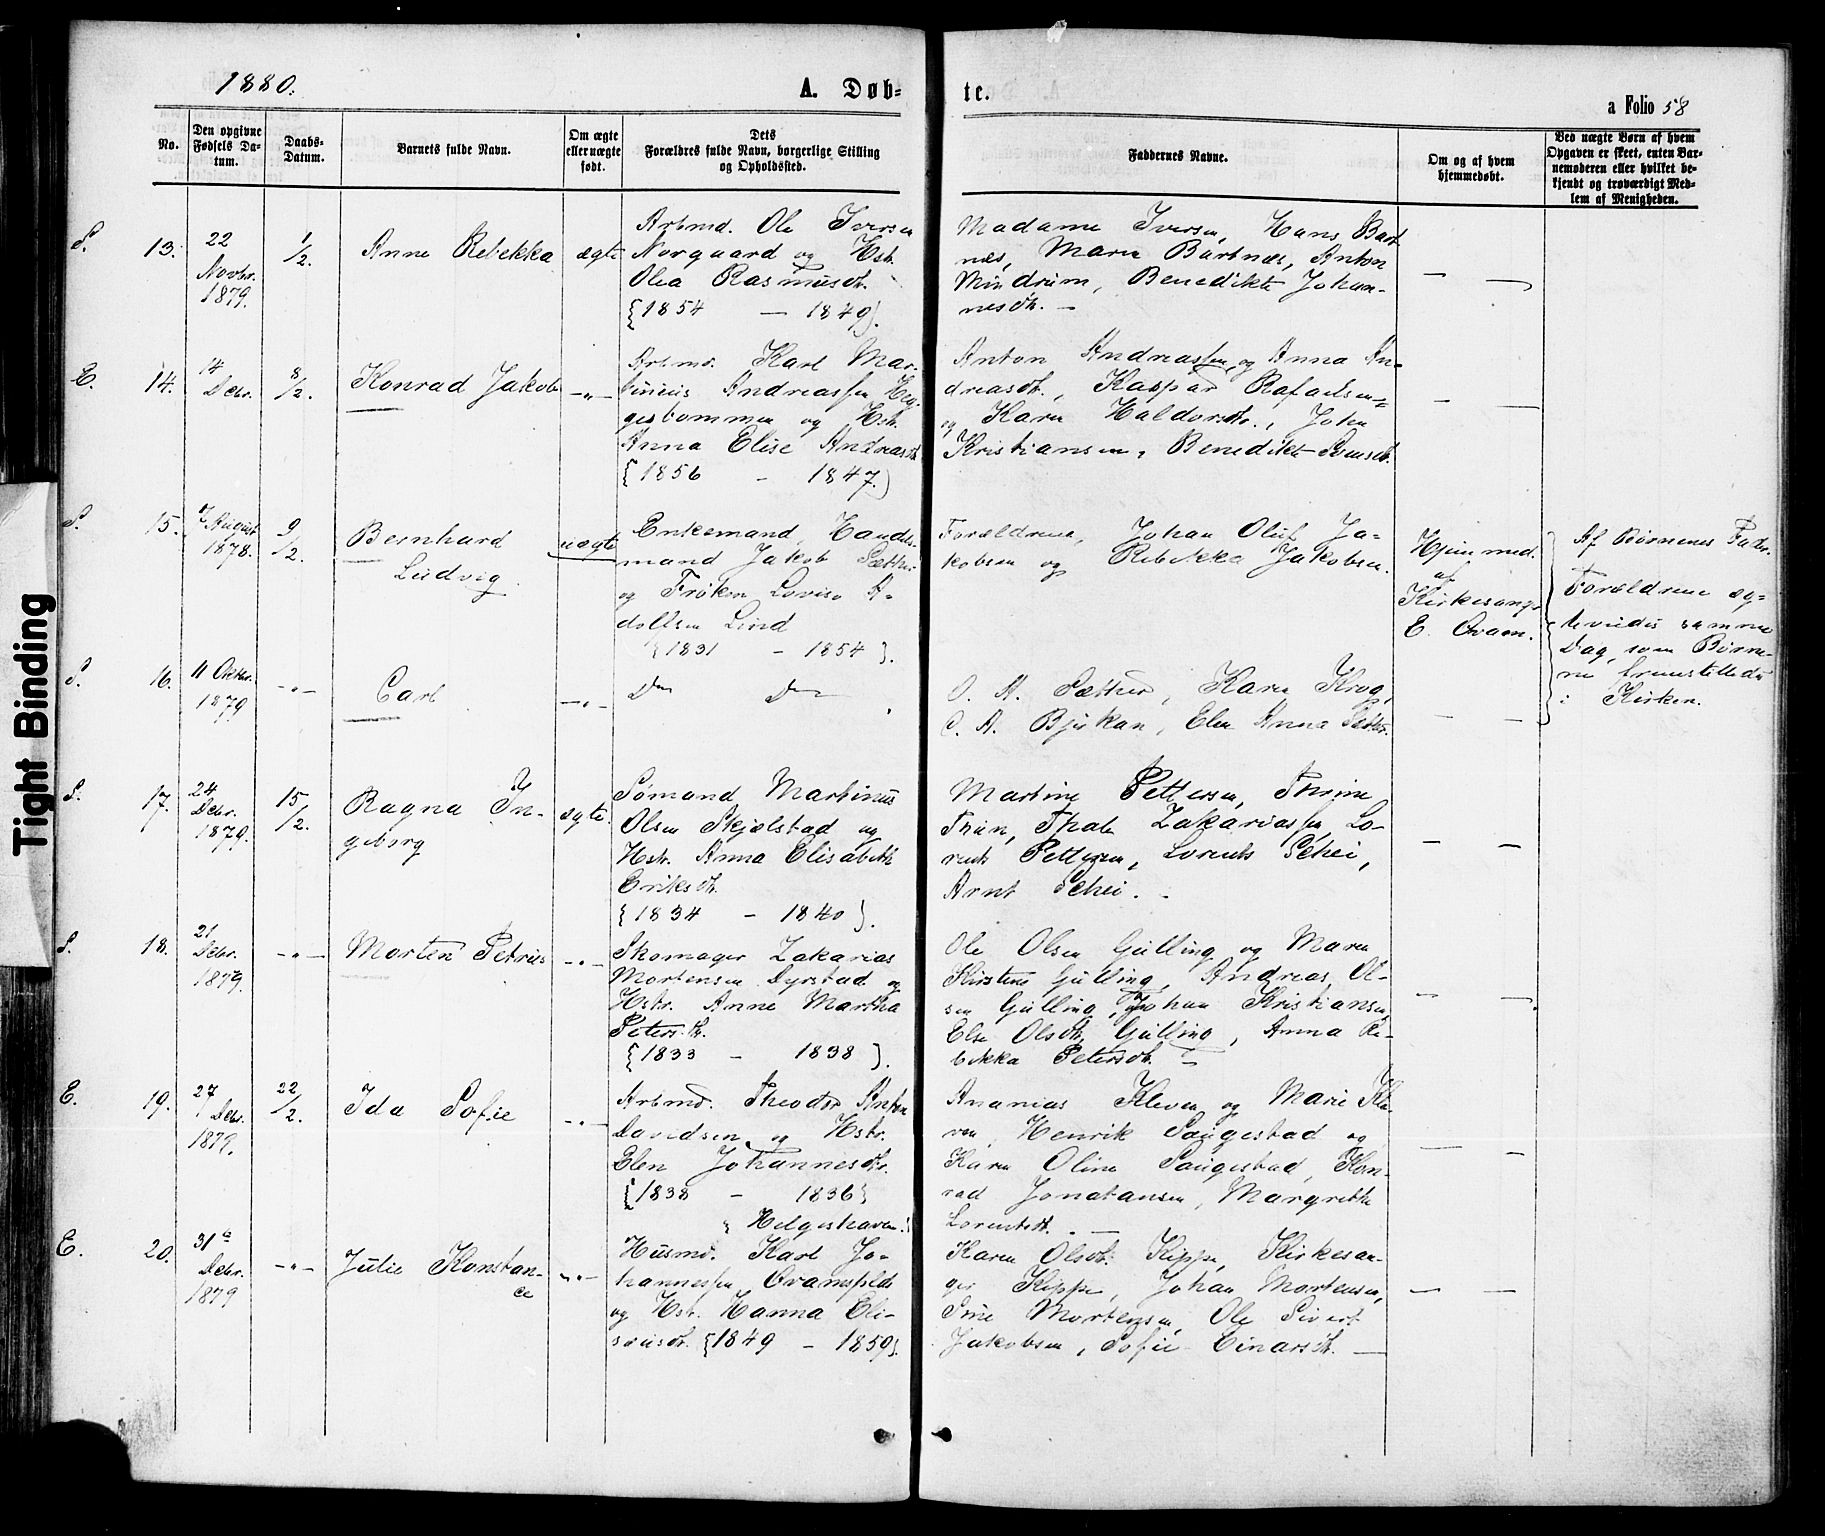 1880.
A. Døb-
te.
a Folio 58
No.
Den opgivne
Fødsels Da-
tum.
Daabs-
Datum.
Barnets fulde Navn.
Om ægte
eller uægte
født.
Dets
Forældres fulde Navn, borgerlige Stilling
og Opholdssted.
Faddernes Navne.
Om og af hvem
hjemmedøbt.
Ved uægte Børn af hvem
Opgaven er skeet, enten Bar-
nemoderen eller hvilket be-
kjendt og troværdigt Med-
lem af Menigheden.
S.
13.
22
Novbr.
1879.
1/2.
Anne Rebekka
ægte
Arbmd. Ole Iversen
Norgaard og Hstr.
Olea Rasmusdt.
{1854 — 1849}.
Madame Iversen, Hans Bart
nes, Maria Bartnes, Anton
Mindrum, Benedikte Johan-
nesdt. —
— —
E.
14.
14
Debr.
8/2.
Konrad Jakob
—"—
Arbmd. Karl Mar-
tinius Andreassen Heg-
gesbommen og Hstr.
Anna Elise Andreasdt.
{1856 - 1847.}
Anton Andreassen og Anna An-
dreasdt., Kaspar Rafaelsen
og Karen Haldorsdtr., John
Kristiansen, Benedikte Svensdt.
— —
S.
15.
7 August
1878.
9/2.
Bernhard
Ludvig.
uægte
Enkemand, Handels-
mand Jakob Sæther
og Frøken Lovise A-
dolfsen Lind
{1831 - 1854}.
Forældrene, Johan Oluf Ja-
kobsen og Rebekka Jakobsen.
Hjemmed.
af
Kirkesang.
E. Qvam.
Af Børnenes Fader.
Forældrene æg-
teviedes samme
Dag, som Børne-
ne fremstilledes
i Kirken.
S.
16.
11 Oktbr.
1879
-"-
Carl
—"—
Do Do
O. A. Sæther, Karen Krog,
C. A. Bjukan, Elen Anna Sæther.
— —
S.
17.
24
Debr.
1879.
15/2.
Ragna In-
geborg
ægte.
Sømand Martinus
Olsen Skjelstad og
Hstr. Anna Elisabeth
Eriksdt.
{1834 - 1840}.
Martine Pettersen, Thrine
Thrin, Thale Zakariassen, Lo-
rents Pettersen, Lorents Schei,
Arnt Schei. -
— —
S.
18.
21
Debr.
1879.
-"-
Morten Petrus
-"-
Skomager Zakarias
Mortensen Dyrstad og
Hstr. Anne Martha
Petersdt.
{1833 - 1838}.
Ole Olsen Gulling og Maren
Kirstine Gulling, Andreas Ol-
sen Gulling, Johan Kristiansen,
Else Olsdt. Gulling, Anna Re-
bekka Petersdt. —
— —
E.
19.
27
Debr.
1879.
22/2.
Ida Sofie
-"-
Arbmd. Theodor Anton
Davidsen og Hstr.
Elen Johannesdtr.
{1838 - 1836}
{Helgeshaven.}
Ananias Kleven og Marie Kle-
ven, Henrik Saugestad og
Karen Oline Saugestad, Kon-
rad Jonatansen, Margrethe
Lorentsdt. —
— —
E.
20.
31te
Debr.
1879
-"-
Julie Konstan-
ce
-"-
Husmd. Karl Jo-
hannessen Qvamsfeld
og Hstr. Hanna Eli-
seusdt. {1849 - 1859}.
Karen Olsdt. Kippe, Kirkesan-
ger Kippe, Johan Mortensen,
Sine Mortensen, Ole Sivert
Jakobsen, Sofie Einarsdt. —
— —
Tight Binding